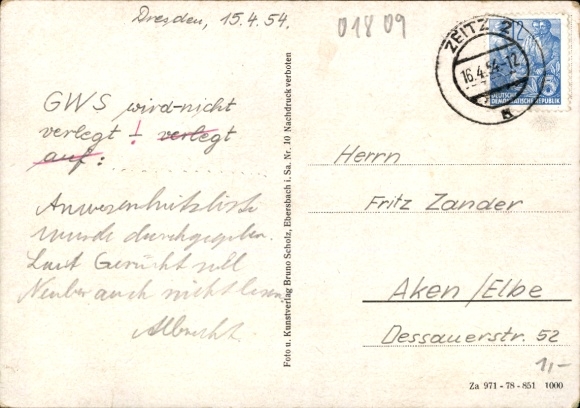 Dresden, 15.4.54.
01809
ZEITZ 2
16.4.54.-12
DEUTSCHE
DEMOKRATISCHE REPUBLIK
5
GWS wird nicht
verlegt! verlegt
auf:
Anwesenheitsliste
wurde durchgegeben.
Laut Gerücht soll
Neuber auch nicht lesen.
Albrecht.
Foto u. Kunstverlag Bruno Scholz, Ebersbach i. Sa. Nr. 10 Nachdruck verboten
Herrn
Fritz Zander
Aken/Elbe
Dessauerstr. 52
1,-
Za 971-78-851 1000